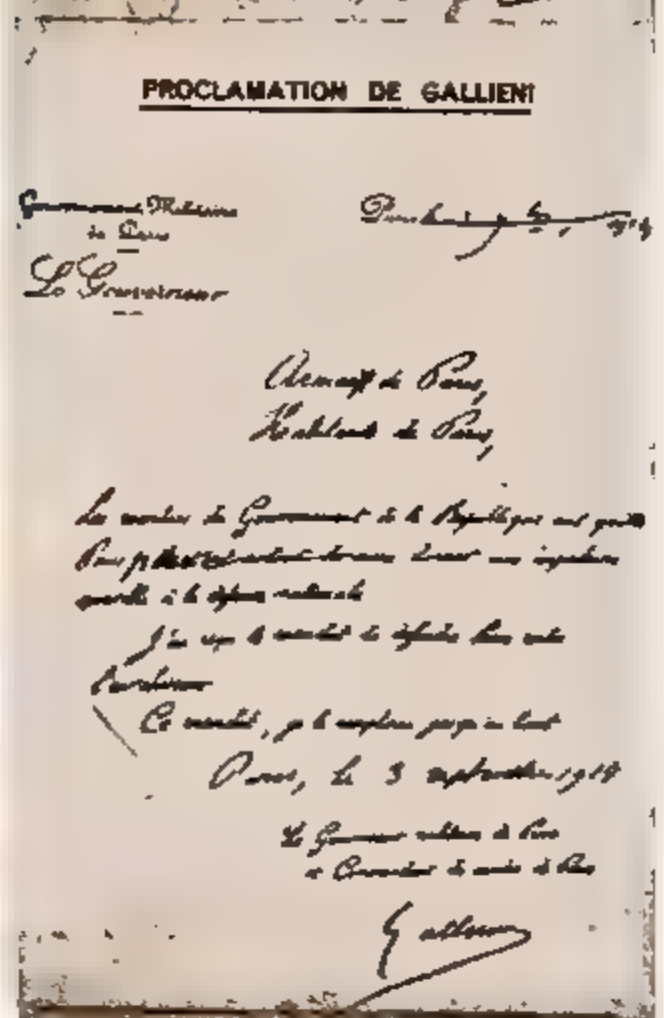 PROCLAMATION DE GALLIENI
Gouvernement Militaire
de Paris
Le Gouverneur
Armée de Paris,
Habitants de Paris,
Les membres du Gouvernement de la République ont quitté
Paris pour donner une impulsion
nouvelle à la défense nationale
J'ai reçu le mandat de défendre Paris contre
l'envahisseur
Ce mandat, je le remplirai jusqu'au bout
Paris, le 3 septembre 1914
Le Gouverneur militaire de Paris
et Commandant de l'armée de Paris
Gallieni